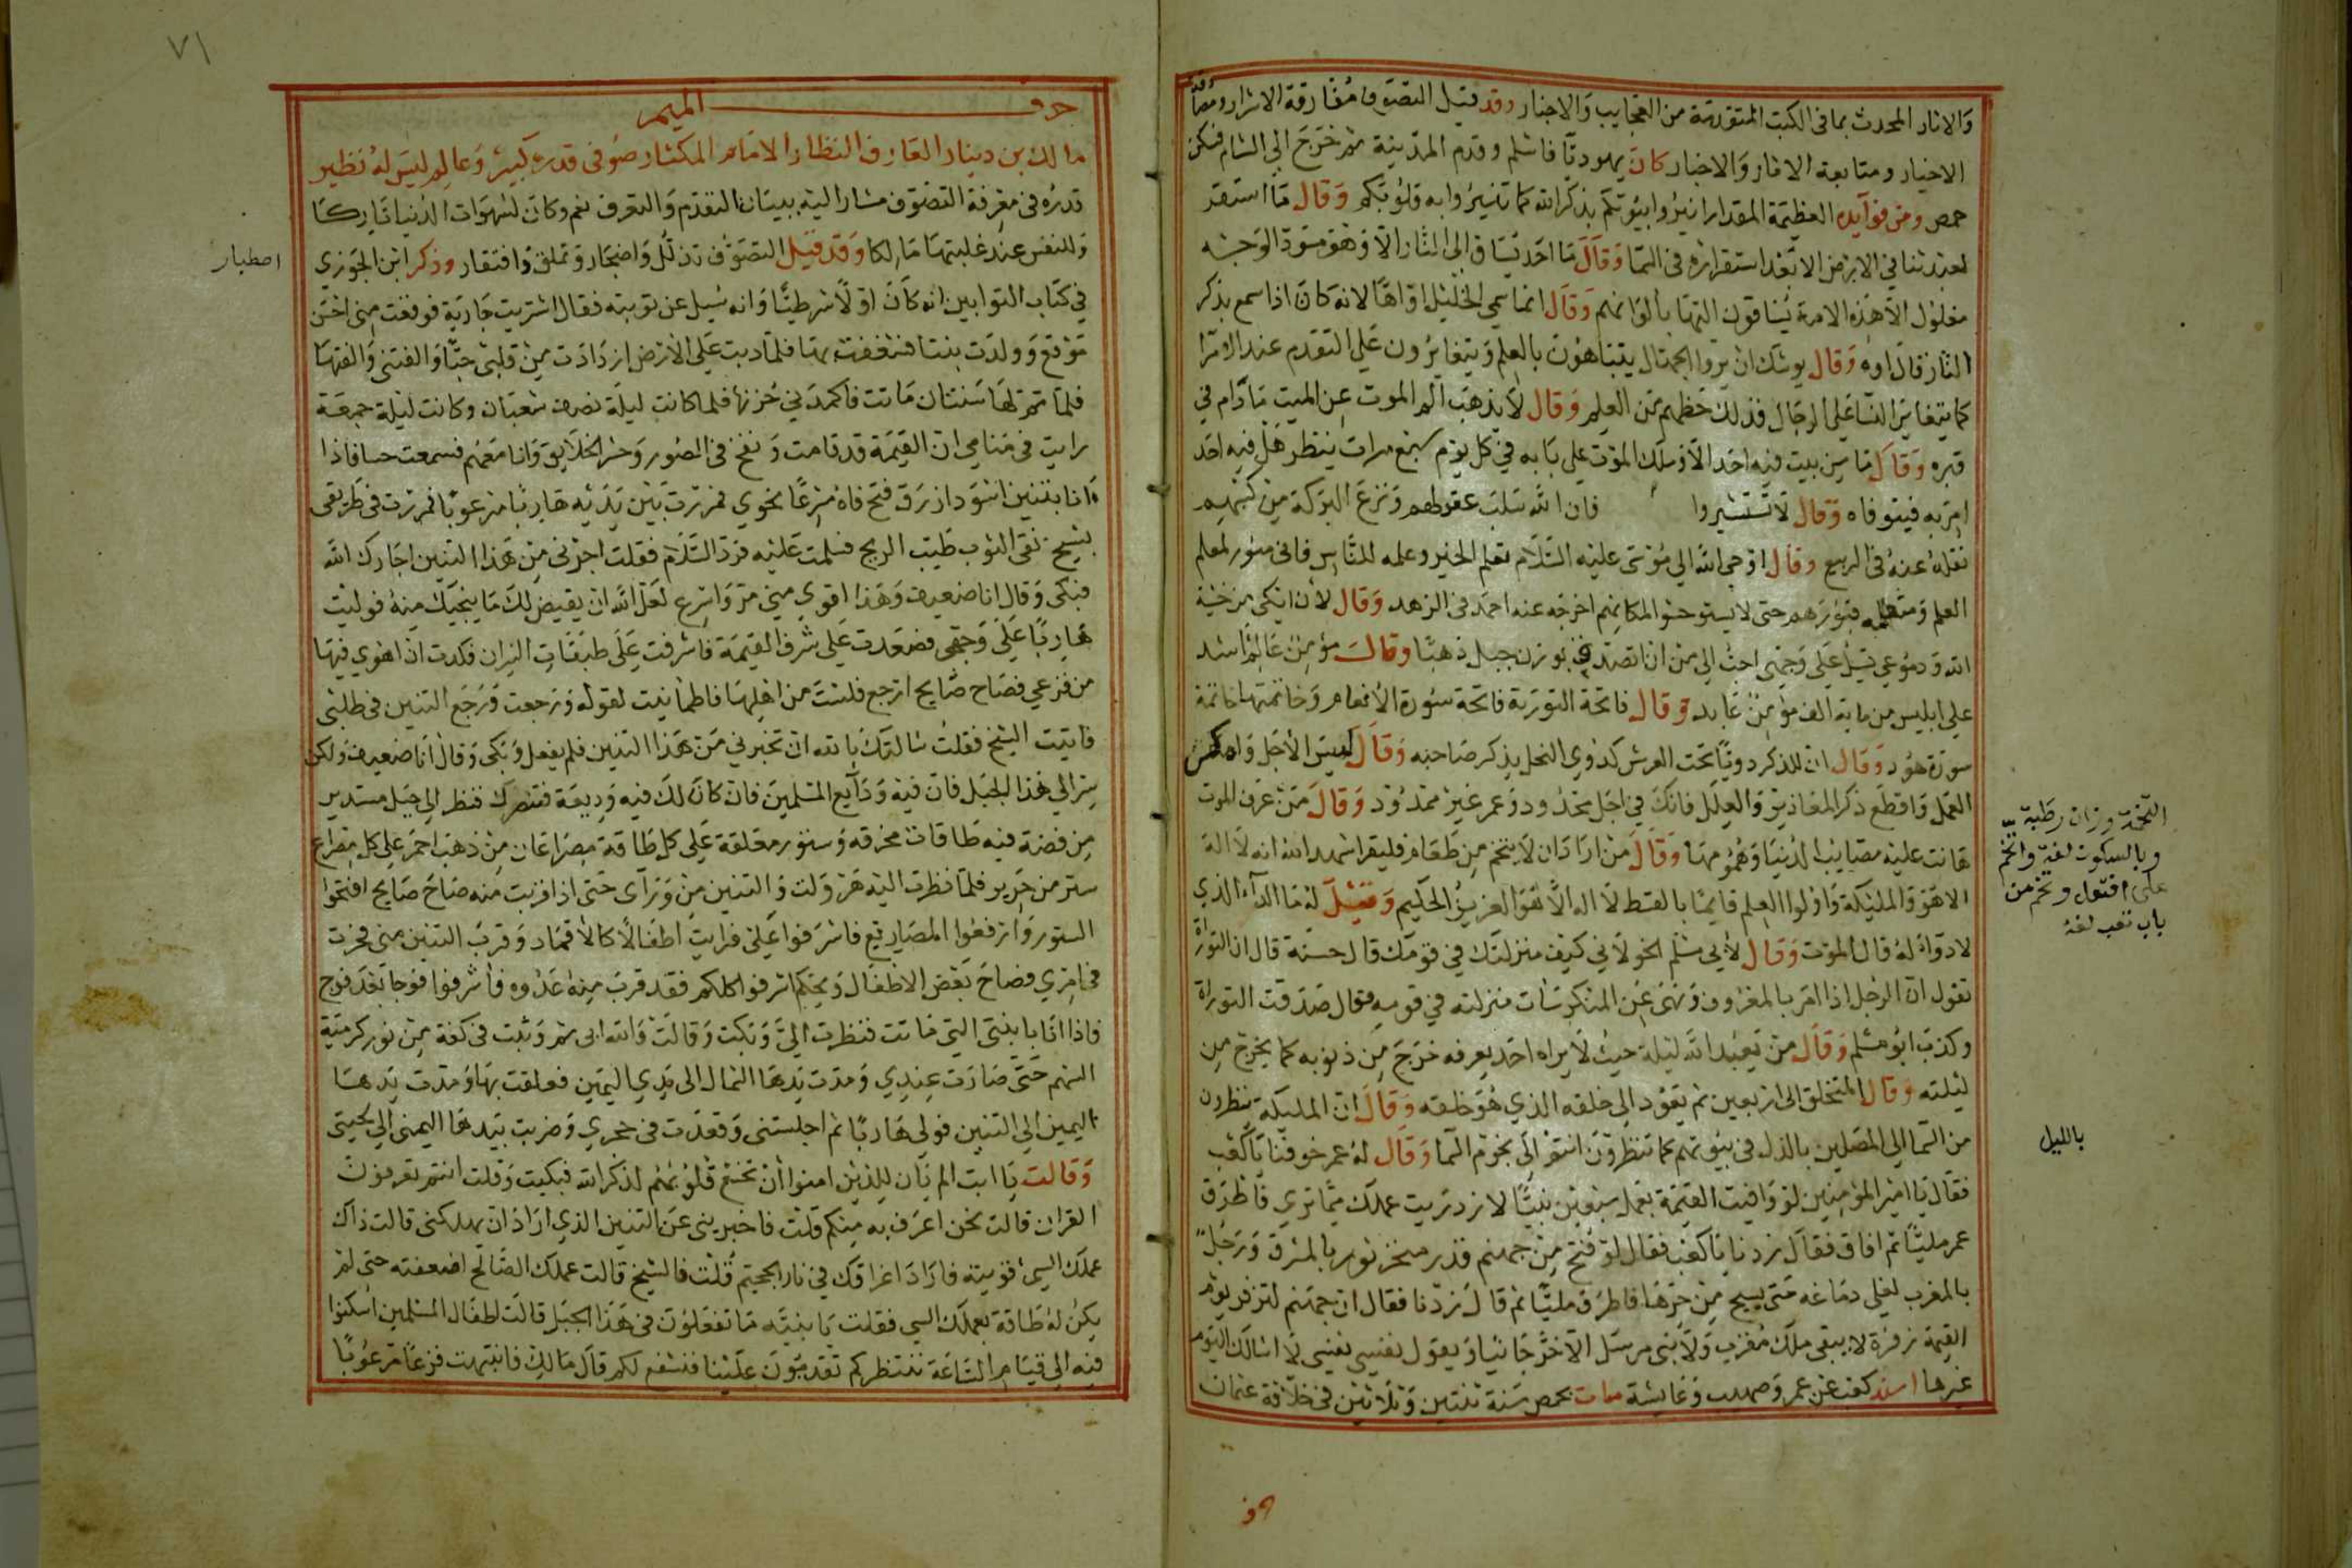 والاثار المحدث بما فى الكتب المتقدمة من العجايب والاخبار وقد قيل التصوف مفارقة الاشرار ومصادقة
الاخيار ومتابعة الاثار والاخبار كان يهوديا فاسلم وقدم المدينة ثم خرج الى الشام فسكن
حمص ومن فوايده العظيمة المقدار انيروا بيوتكم بذكر الله كما تنيروا به قلوبكم وقال ما استقر
لعبد ثنا في الارض الا بعد استقراره فى السما وقال ما احد يساق الى النار الا وهو مسود الوجه
مغلول الا هذه الامة يساقون اليها بالوانهم وقال انما سمي الخليل اواها لانه كان اذا سمع بذكر
النار قال اوه وقال يوشك ان تروا الجهال يتباهون بالعلم ويتغايرون على التقدم عند الامرا
كما يتغاير النسا على الرجال فذلك حظهم من العلم وقال لا يذهب الم الموت عن الميت ما دام في
قبره وقال ما من بيت فيه احد الا وملك الموت على بابه في كل يوم سبع مرات ينظر هل فيه احد
امر به فيتوفاه وقال لا تستشيروا فان الله سلب عقولهم ونزع البركة من كسبهم
نقله عنه فى الربيع وقال اوحى الله الى موسى عليه السلام تعلم الخير وعلمه للناس فانى منور لمعلم
العلم ومتعلمه قبورهم حتى لا يستوحشوا لمكانهم اخرجه عنه احمد فى الزهد وقال لان ابكي من خشية
الله ودموعي تسيل على وجهي احب الى من ان اتصدق بوزن جبل ذهبا وقال مؤمن عالم اشد
على ابليس من ماية الف مؤمن عابد وقال فاتحة التورية فاتحة سورة الانعام وخاتمتها خاتمة
سورة هود وقال ان للذكر دويا تحت العرش كدوي النحل يذكر صاحبه وقال
العمل واقطع ذكر المعاذير والعلل فانك في اجل محدود وعمر غير ممدود وقال من عرف الموت
هانت عليه مصايب الدنيا وهمومها وقال من اراد ان لا يتخم من طعام فليقرا شهد الله انه لا اله
الا هو والمليكة واولوا العلم قايما بالقسط لا اله الا هو العزيز الحكيم وقيل له ما الداء الذي
لا دواء له قال الموت وقال لابي مسلم الخولاني كيف منزلتك في قومك قال حسنة قال ان التوراة
تقول ان الرجل اذا امر بالمعروف ونهى عن المنكر سات منزلته في قومه فقال صدقت التوراة
وكذب ابو مسلم وقال من تعبد الله ليلة حيث لا يراه احد يعرفه خرج من ذنوبه كما يخرج من
ليلته وقال المتخلق الى اربعين ثم يعود الى خلقه الذي هو خلقه وقال ان المليكة ينظرون
من السما الى المصلين بالذل فى بيوتهم كما تنظرون انتم الى نجوم السما وقال له عمر خوفنا يا كعب
فقال يا امير المؤمنين لو وافيت القيمة بعمل سبعين نبيا لازدريت عملك مما ترى فاطرق
عمر مليا ثم افاق فقال زدنا يا كعب فقال لو فتح من جهنم قدر منخر ثور بالمشرق ورجل
بالمغرب لغلى دماغه حتى يسيح من حرها فاطرق مليا ثم قال زدنا فقال ان جهنم لتزفر يوم
القيمة زفرة لا يبقى ملك مقرب ولا نبى مرسل الا خر جاثيا ويقول نفسي نفسي لا اسالك اليوم
غيرها اسند كعب عن عمر وصهيب وعايشة مات بحمص سنة ثنتين وثلاثين فى خلافة عثمان
التخمة وزان رطبة
وبالسكون لغة واتخم
على افتعل وتخم من
باب تعب لغة
بالليل
حرف
٧١
حرف الميم
مالك بن دينار العارف النظار الامام المكثار صوفى قدره كبير وعالم ليس له نظير
قدره فى معرفة التصوف مشار اليه ببنان التقدم والتعرف نعم وكان لشهوات الدنيا تاركا
وللنفس عند غلبتها مالكا وقد قيل التصوف تذلل واضجار وتملق وافتقار وذكر ابن الجوزي
في كتاب التوابين انه كان اولا شرطيا وانه سيل عن توبته فقال اشتريت جارية فوقعت منى احسن
موقع وولدت بنتا فشغفت بها فلما دبت على الارض ازدادت من قلبى حبا والفتنى والفتها
فلما تم لها سنتان ماتت فاكمدني حزنها فلما كانت ليلة نصف شعبان وكانت ليلة جمعة
رايت فى منامي ان القيمة قد قامت ونفخ فى الصور وحشر الخلايق وانا معهم فسمعت حسا فاذا
انا بتنين اسود ازرق فتح فاه مسرعا نحوي فمررت بين يديه هاربا مرعوبا فمررت فى طريقى
بشيخ نقى الثوب طيب الريح فسلمت عليه فرد السلام فقلت اجرنى من هذا التنين اجارك الله
فبكى وقال انا ضعيف وهذا اقوى مني مر واسرع لعل الله ان يقيض لك ما ينجيك منه فوليت
هاربا على وجهى فصعدت على شرف القيمة فاشرفت على طبقات النيران فكدت ان اهوي فيها
من فزعي فصاح صايح ارجع فلست من اهلها فاطمانيت لقوله ورجعت ورجع التنين فى طلبى
فاتيت الشيخ فقلت سالتك بالله ان تخبرني من هذا التنين فلم يفعل وبكى وقال انا ضعيف ولكن
سر الى هذا الجبل فان فيه ودايع المسلمين فان كان لك فيه وديعة فتنصرك فنظر الى جبل مستدير
من فضة فيه طاقات مخرقة وستور معلقة على كل طاقة مصراعان من ذهب احمر على كل مصراع
ستر من حرير فلما نظرت اليه هرولت والتنين من وراى حتى اذا قربت منه صاح صايح افتحوا
الستور وارفعوا المصاريع فاشرفوا على فرايت اطفالا كالاقمار وقرب التنين منى فحرت
فى امري فصاح بعض الاطفال ويحكم اشرفوا كلكم فقد قرب منه عدوه فاشرفوا فوجا بعد فوج
فاذا انا بابنتى التى ماتت فنظرت الى وبكت وقالت والله ابى ثم وثبت فى كفة من نور كرمية
السهم حتى صارت عندي ومدت يدها الشمال الى يدي اليمين فعلقت بها ومدت يدها
اليمين الى التنين فولى هاربا ثم اجلستنى وقعدت فى حجري وضربت بيدها اليمنى الى لحيتى
وقالت يا ابت الم يان للذين امنوا ان تخشع قلوبهم لذكر الله فبكيت وقلت انتم تعرفون
القران قالت نحن اعرف به منكم قلت فاخبرينى عن التنين الذي اراد ان يهلكنى قالت ذاك
عملك السيى قويته فاراد اغراقك في نار الجحيم قلت فالشيخ قالت عملك الصالح اضعفته حتى لم
يكن له طاقة بعملك السيى فقلت يا بنيه ما تفعلون فى هذا الجبل قالت اطفال المسلمين اسكنوا
فيه الى قيام الساعة ننتظركم تقدمون علينا فنشفع لكم قال مالك فانتبهت فزعا مرعوبا
اصطبار